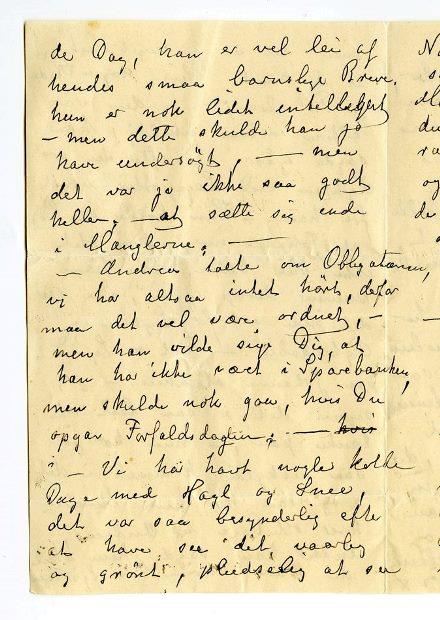 de Dag, han er vel lei af
hendes smaa barnslige Breve,
hun er nok lidet intelligent
– men dette skulde han jo
have undersøgt, — men
det var jo ikke saa godt
heller, — at sætte sig inde
i Manglerne, —
– Andrea talte om Obligationen,
vi har altsaa intet hørt, derfor
maa det vel være ordnet, –
men han vilde sige Dig, at
han har ikke været i Sparebanken,
men skulde nok gaa, hvis Du
opgav Forfaldsdagen, — hvis
– Vi har havt nogle kolde
Dage med Hagl og Snee,
det var saa besynderlig efter
at have see det vaarlig
og grønt, pludselig at see
N
s
M
du
ra
og
de